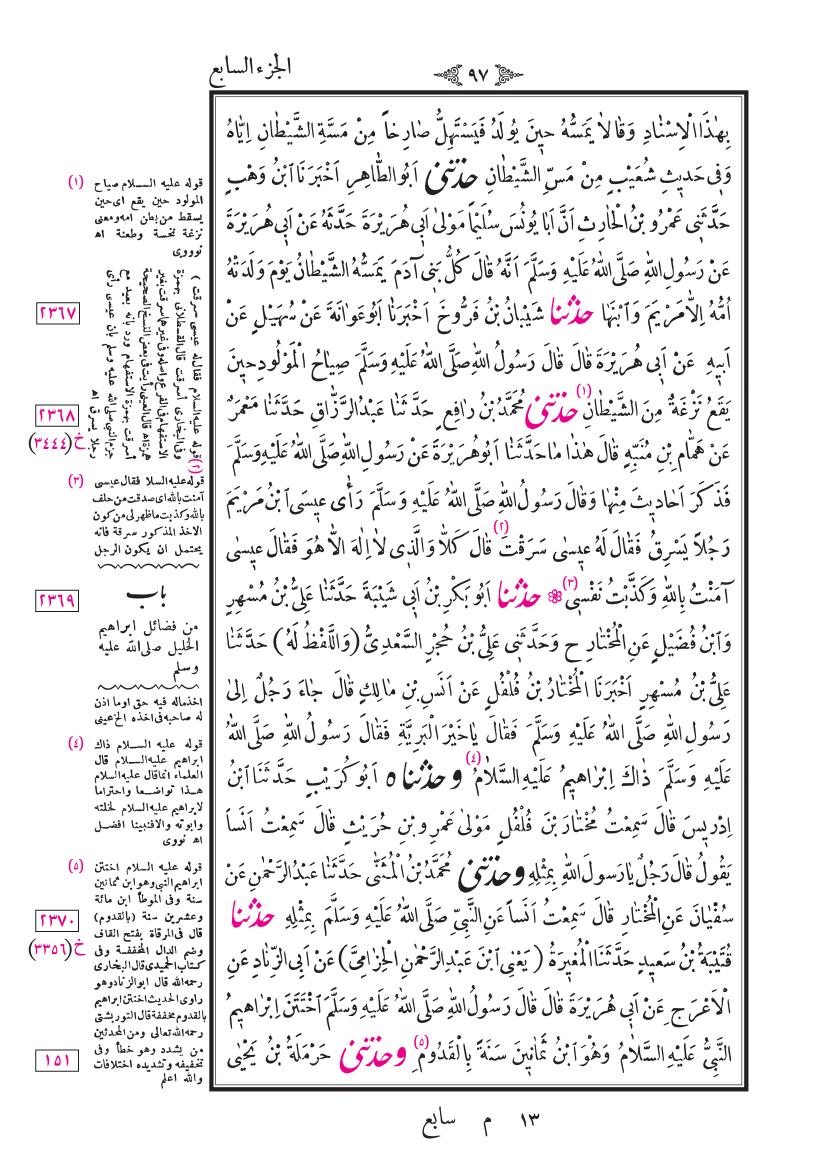 الجزء السابع
٩٧
بِهٰذَا الْاِسْنَادِ وَقَالَا يَمَسُّهُ حِينَ يُولَدُ فَيَسْتَهِلُّ صَارِخاً مِنْ مَسَّةِ الشَّيْطَانِ اِيَّاهُ
وَفِي حَديثِ شُعَيْبٍ مِنْ مَسِّ الشَّيْطَانِ حَدَّثَنِي اَبُو الطَّاهِرِ اَخْبَرَنَا ابْنُ وَهْبٍ
حَدَّثَنِي عَمْرُو بْنُ الْحَارِثِ اَنَّ اَبَا يُونُسَ سُلَيْماً مَوْلىٰ اَبِي هُرَيْرَةَ حَدَّثَهُ عَنْ اَبِي هُرَيْرَةَ
عَنْ رَسُولِ اللّٰهِ صَلَّى اللّٰهُ عَلَيْهِ وَسَلَّمَ اَنَّهُ قَالَ كُلُّ بَنِي آدَمَ يَمَسُّهُ الشَّيْطَانُ يَوْمَ وَلَدَتْهُ
اُمُّهُ اِلَّا مَرْيَمَ وَابْنَهَا حَدَّثَنَا شَيْبَانُ بْنُ فَرُّوخَ اَخْبَرَنَا اَبُو عَوَانَةَ عَنْ سُهَيْلٍ عَنْ
اَبِيهِ عَنْ اَبِي هُرَيْرَةَ قَالَ قَالَ رَسُولُ اللّٰهِ صَلَّى اللّٰهُ عَلَيْهِ وَسَلَّمَ صِيَاحُ الْمَوْلُودِ حِينَ
يَقَعُ نَزْغَةٌ مِنَ الشَّيْطَانِ (١) حَدَّثَنِي مُحَمَّدُ بْنُ رَافِعٍ حَدَّثَنَا عَبْدُ الرَّزَّاقِ حَدَّثَنَا مَعْمَرٌ
عَنْ هَمَّامِ بْنِ مُنَبِّهٍ قَالَ هٰذَا مَا حَدَّثَنَا اَبُو هُرَيْرَةَ عَنْ رَسُولِ اللّٰهِ صَلَّى اللّٰهُ عَلَيْهِ وَسَلَّمَ
فَذَكَرَ اَحَادِيثَ مِنْهَا وَقَالَ رَسُولُ اللّٰهِ صَلَّى اللّٰهُ عَلَيْهِ وَسَلَّمَ رَأٰى عِيسَى ابْنُ مَرْيَمَ
رَجُلاً يَسْرِقُ فَقَالَ لَهُ عِيسٰى سَرَقْتَ (٢) قَالَ كَلَّا وَالَّذِي لَا اِلٰهَ اِلَّا هُوَ فَقَالَ عِيسٰى
آمَنْتُ بِاللّٰهِ وَكَذَّبْتُ نَفْسِي (٣) ❁ حَدَّثَنَا اَبُو بَكْرِ بْنُ اَبِي شَيْبَةَ حَدَّثَنَا عَلِيُّ بْنُ مُسْهِرٍ
وَابْنُ فُضَيْلٍ عَنِ الْمُخْتَارِ ح وَحَدَّثَنِي عَلِيُّ بْنُ حُجْرٍ السَّعْدِيُّ (وَاللَّفْظُ لَهُ) حَدَّثَنَا
عَلِيُّ بْنُ مُسْهِرٍ اَخْبَرَنَا الْمُخْتَارُ بْنُ فُلْفُلٍ عَنْ اَنَسِ بْنِ مَالِكٍ قَالَ جَاءَ رَجُلٌ اِلىٰ
رَسُولِ اللّٰهِ صَلَّى اللّٰهُ عَلَيْهِ وَسَلَّمَ فَقَالَ يَا خَيْرَ الْبَرِيَّةِ فَقَالَ رَسُولُ اللّٰهِ صَلَّى اللّٰهُ
عَلَيْهِ وَسَلَّمَ ذَاكَ اِبْرَاهِيمُ عَلَيْهِ السَّلَامُ (٤) وَحَدَّثَنَاهُ اَبُو كُرَيْبٍ حَدَّثَنَا ابْنُ
اِدْرِيسَ قَالَ سَمِعْتُ مُخْتَارَ بْنَ فُلْفُلٍ مَوْلىٰ عَمْرِو بْنِ حُرَيْثٍ قَالَ سَمِعْتُ اَنَساً
يَقُولُ قَالَ رَجُلٌ يَا رَسُولَ اللّٰهِ بِمِثْلِهِ وَحَدَّثَنِي مُحَمَّدُ بْنُ الْمُثَنّٰى حَدَّثَنَا عَبْدُ الرَّحْمٰنِ عَنْ
سُفْيَانَ عَنِ الْمُخْتَارِ قَالَ سَمِعْتُ اَنَساً عَنِ النَّبِيِّ صَلَّى اللّٰهُ عَلَيْهِ وَسَلَّمَ بِمِثْلِهِ حَدَّثَنَا
قُتَيْبَةُ بْنُ سَعِيدٍ حَدَّثَنَا الْمُغِيرَةُ (يَعْنِي ابْنَ عَبْدِ الرَّحْمٰنِ الْحِزَامِيَّ) عَنْ اَبِي الزِّنَادِ عَنِ
الْاَعْرَجِ عَنْ اَبِي هُرَيْرَةَ قَالَ قَالَ رَسُولُ اللّٰهِ صَلَّى اللّٰهُ عَلَيْهِ وَسَلَّمَ اخْتَتَنَ اِبْرَاهِيمُ
النَّبِيُّ عَلَيْهِ السَّلَامُ وَهُوَ ابْنُ ثَمَانِينَ سَنَةً بِالْقَدُومِ (٥) وَحَدَّثَنِي حَرْمَلَةُ بْنُ يَحْيىٰ
(١) قوله عليه السلام صياح
المولود حين يقع اى حين
يسقط من بطن امه ومعنى
نزغة نخسة وطعنة اه
نووى
(٢) قوله عليه السلام فقال له عيسى سرقت)
وفى البخارى أسرقت قال القسطلانى بهمزة
الاستفهام فى الفرع واصله وفى غيرها سرقت بغير
همزة اه قال العينى رأيت فى بعض النسخ الصحيحة
أسرقت بهمزة الاستفهام ورد بانه بعيد مع
جزم النبي صلى الله عليه وسلم بان عيسى رأى
رجلا يسرق اه
(٣) قوله عليه السلا فقال عيسى
آمنت بالله اى صدقت من حلف
بالله وكذبت ما ظهر لى من كون
الاخذ المذكور سرقة فانه
يحتمل ان يكون الرجل
باب
من فضائل ابراهيم
الخليل صلى الله عليه
وسلم
اخذ ماله فيه حق او ما اذن
له صاحبه فى اخذه الخ عينى
(٤) قوله عليه السلام ذاك
ابراهيم عليه السلام قال
العلماء انما قال عليه السلام
هذا تواضعا واحتراما
لابراهيم عليه السلام لخلته
وابوته والا فنبينا افضل
اه نووى
(٥) قوله عليه السلام اختتن
ابراهيم النبي وهو ابن ثمانين
سنة وفى الموطأ ابن مائة
وعشرين سنة (بالقدوم)
قال فى المرقاة بفتح القاف
وضم الدال المخففة وفى
كتاب الحميدى قال البخارى
رحمه الله قال ابو الزناد وهو
راوى الحديث اختتن ابراهيم
بالقدوم مخففة قال التوربشتى
رحمه الله تعالى ومن المحدثين
من يشدد وهو خطأ وفى
تخفيفه وتشديده اختلافات
والله اعلم
٢٣٦٧
٢٣٦٨
خ (٣٤٤٤)
٢٣٦٩
٢٣٧٠
خ (٣٣٥٦)
١٥١
١٣ م سابع